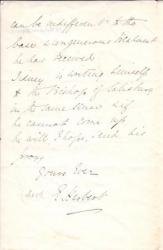 can be indifferent to the
base & ungenerous treatment
he has received
Sidney is writing himself
to the Bishop of Salisbury
in the same sense & if
he cannot come up
he will I hope, send his
proxy
Yours Ever
E. Herbert